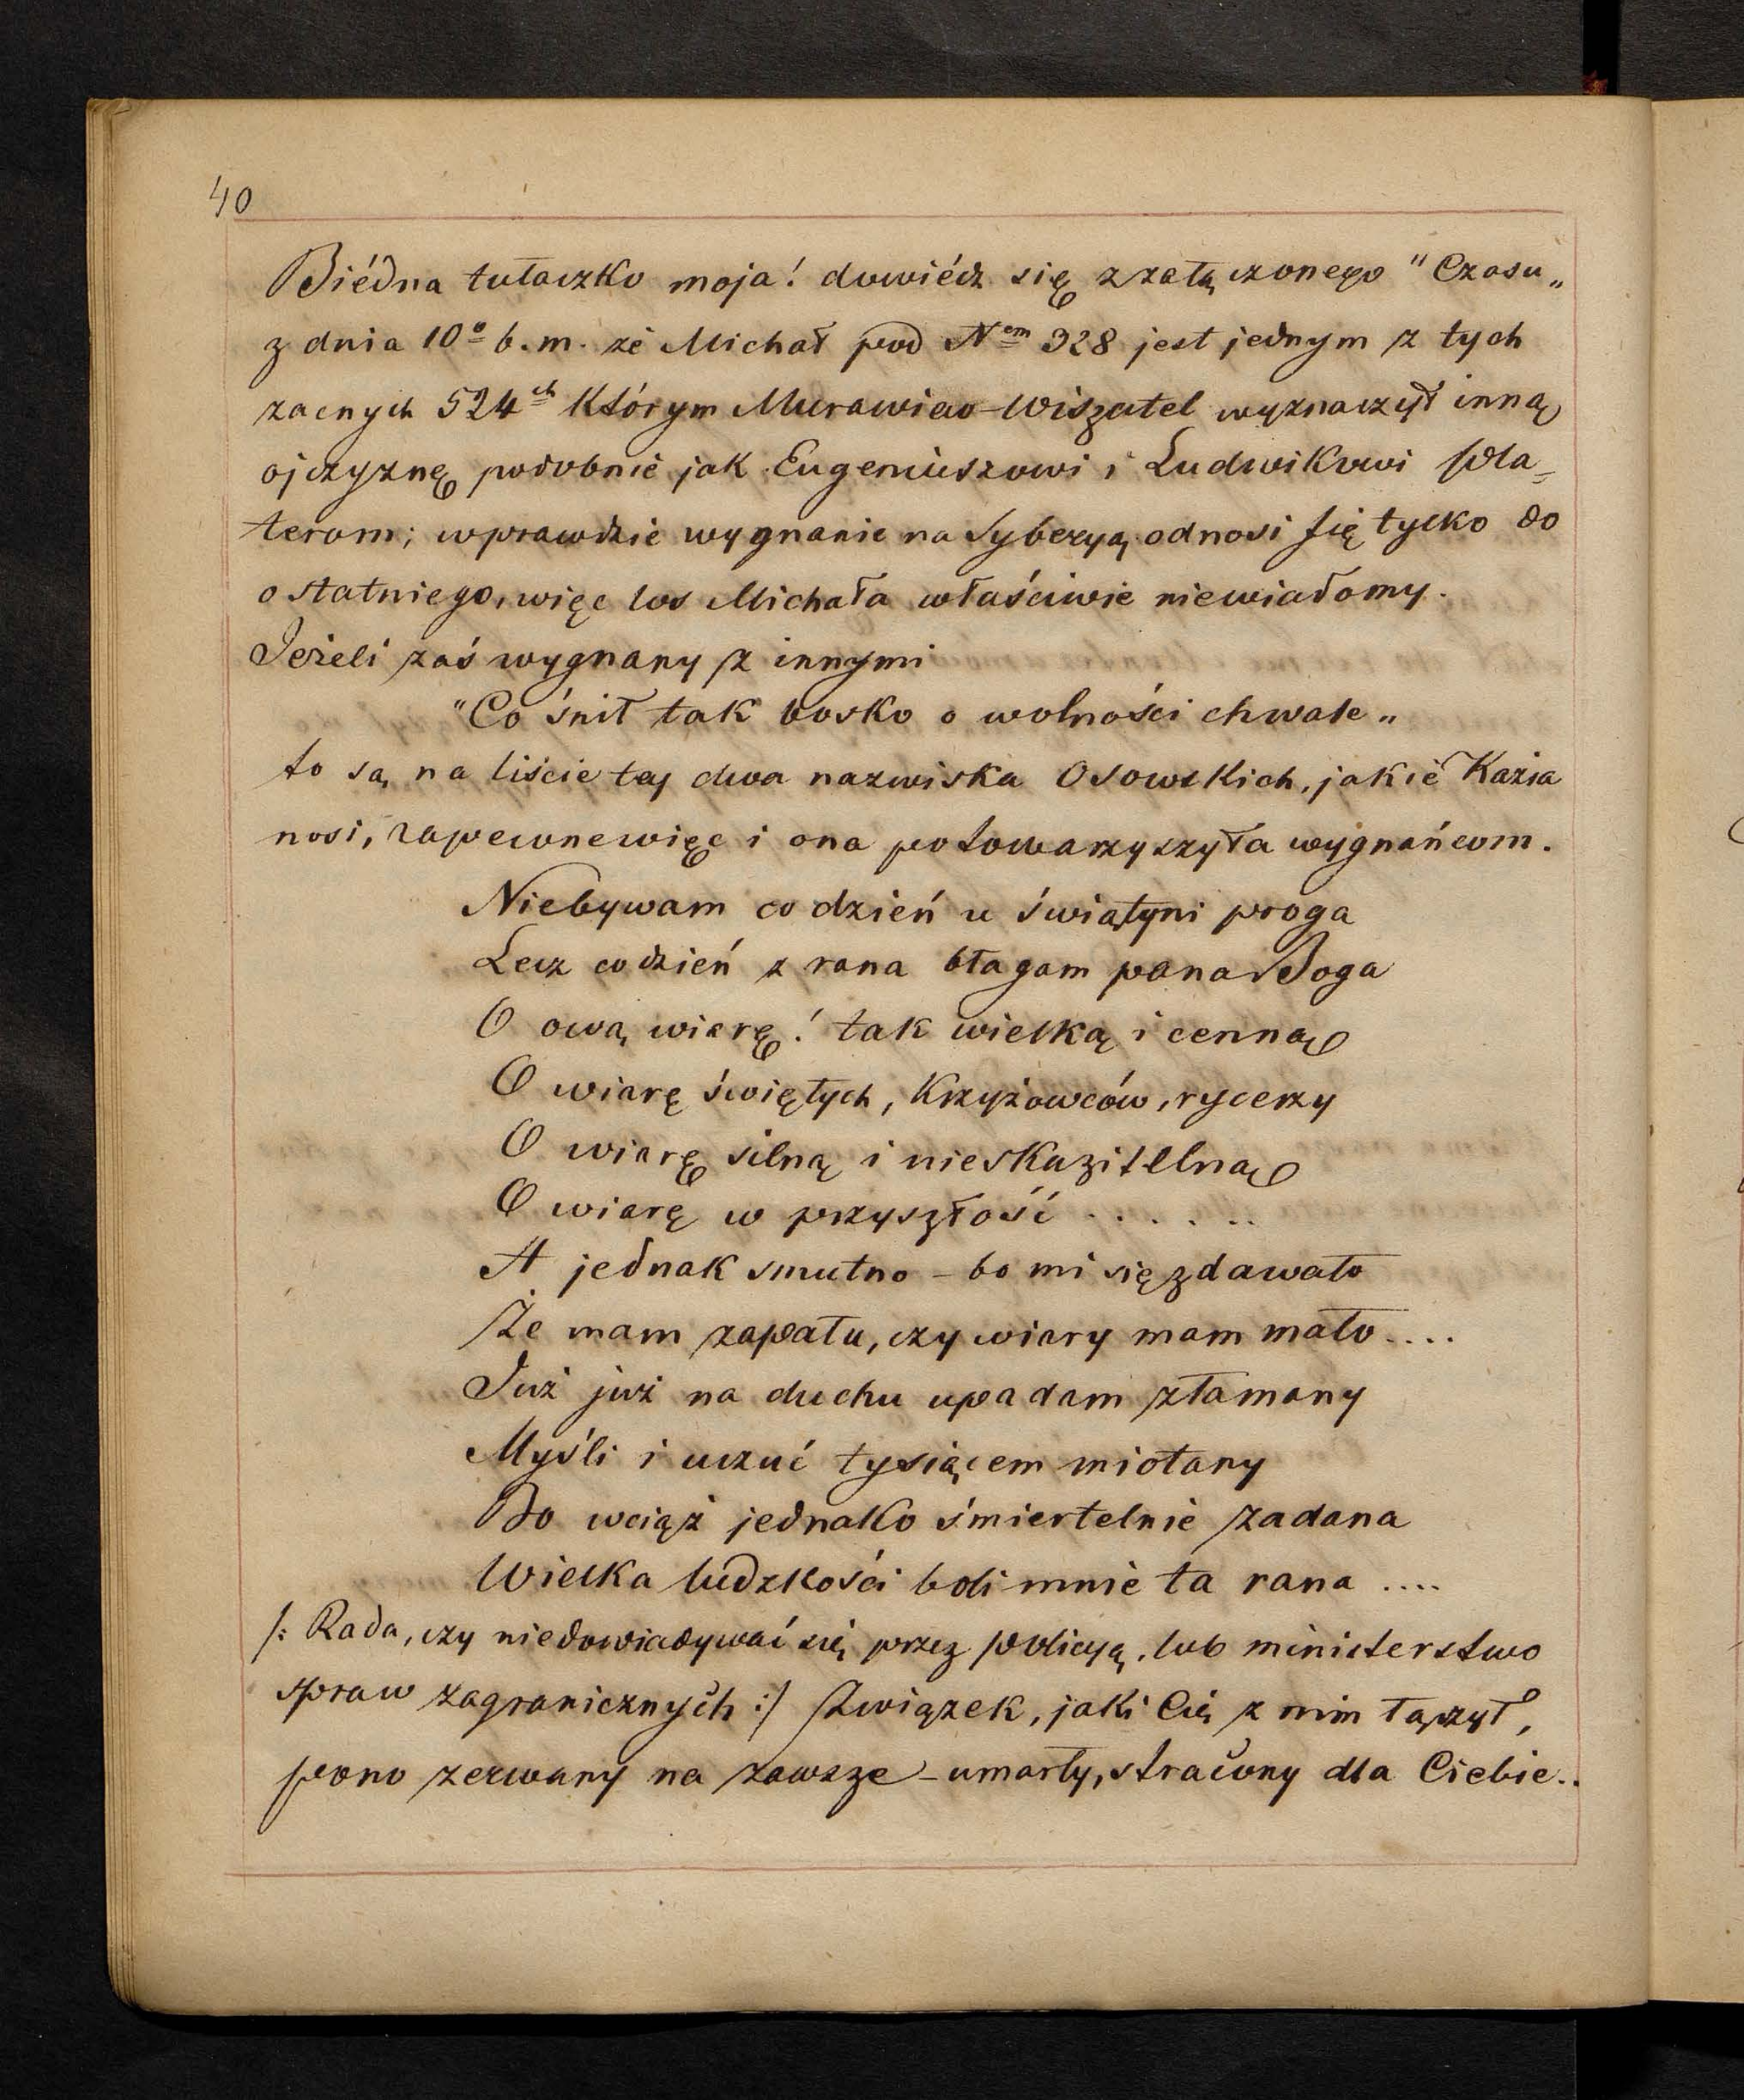 40
Biédna tułaczko moja! dowiédz się z załączonego "Czasu„
z dnia 10º b. m. że Michał pod Nem 328 jest jednym z tych
zacnych 524ch którym Murawiew-Wiszatel wyznaczył inną
ojczyznę podobnie jak Eugeniuszowi i Ludwikowi Pla=
terom; wprawdzie wygnanie na Syberyą odnosi się tylko do
ostatniego, więc los Michała właściwie niewiadomy.
Jeżeli zaś wygnany z innymi
"Co śnił tak bosko o wolności chwale„
to są na liście tej dwa nazwiska Osowskich, jakie Kazia
nosi, zapewne więc i ona potowarzyszyła wygnańcom.
Niebywam co dzień u świątyni proga
Lecz co dzień z rana błagam pana Boga
O ową wiarę! tak wielką i cenną
O wiarę świętych, Krzyżowców, rycerzy
O wiarę silną i nieskazitelną
O wiarę w przyszłość . . . . . .
A jednak smutno – bo mi się zdawało
Że mam zapału, czy wiary mam mało....
Już już na duchu upadam złamany
Myśli i uczuć tysiącem miotany
Bo wciąż jednako śmiertelnie zadana
Wielka ludzkości boli mnie ta rana ....
/: Rada, czy niedowiadywać się przez policyą, lub ministerstwo
spraw zagranicznych :/ Związek, jaki Cię z nim łączył,
pono zerwany na zawsze – umarły, stracony dla Ciebie..